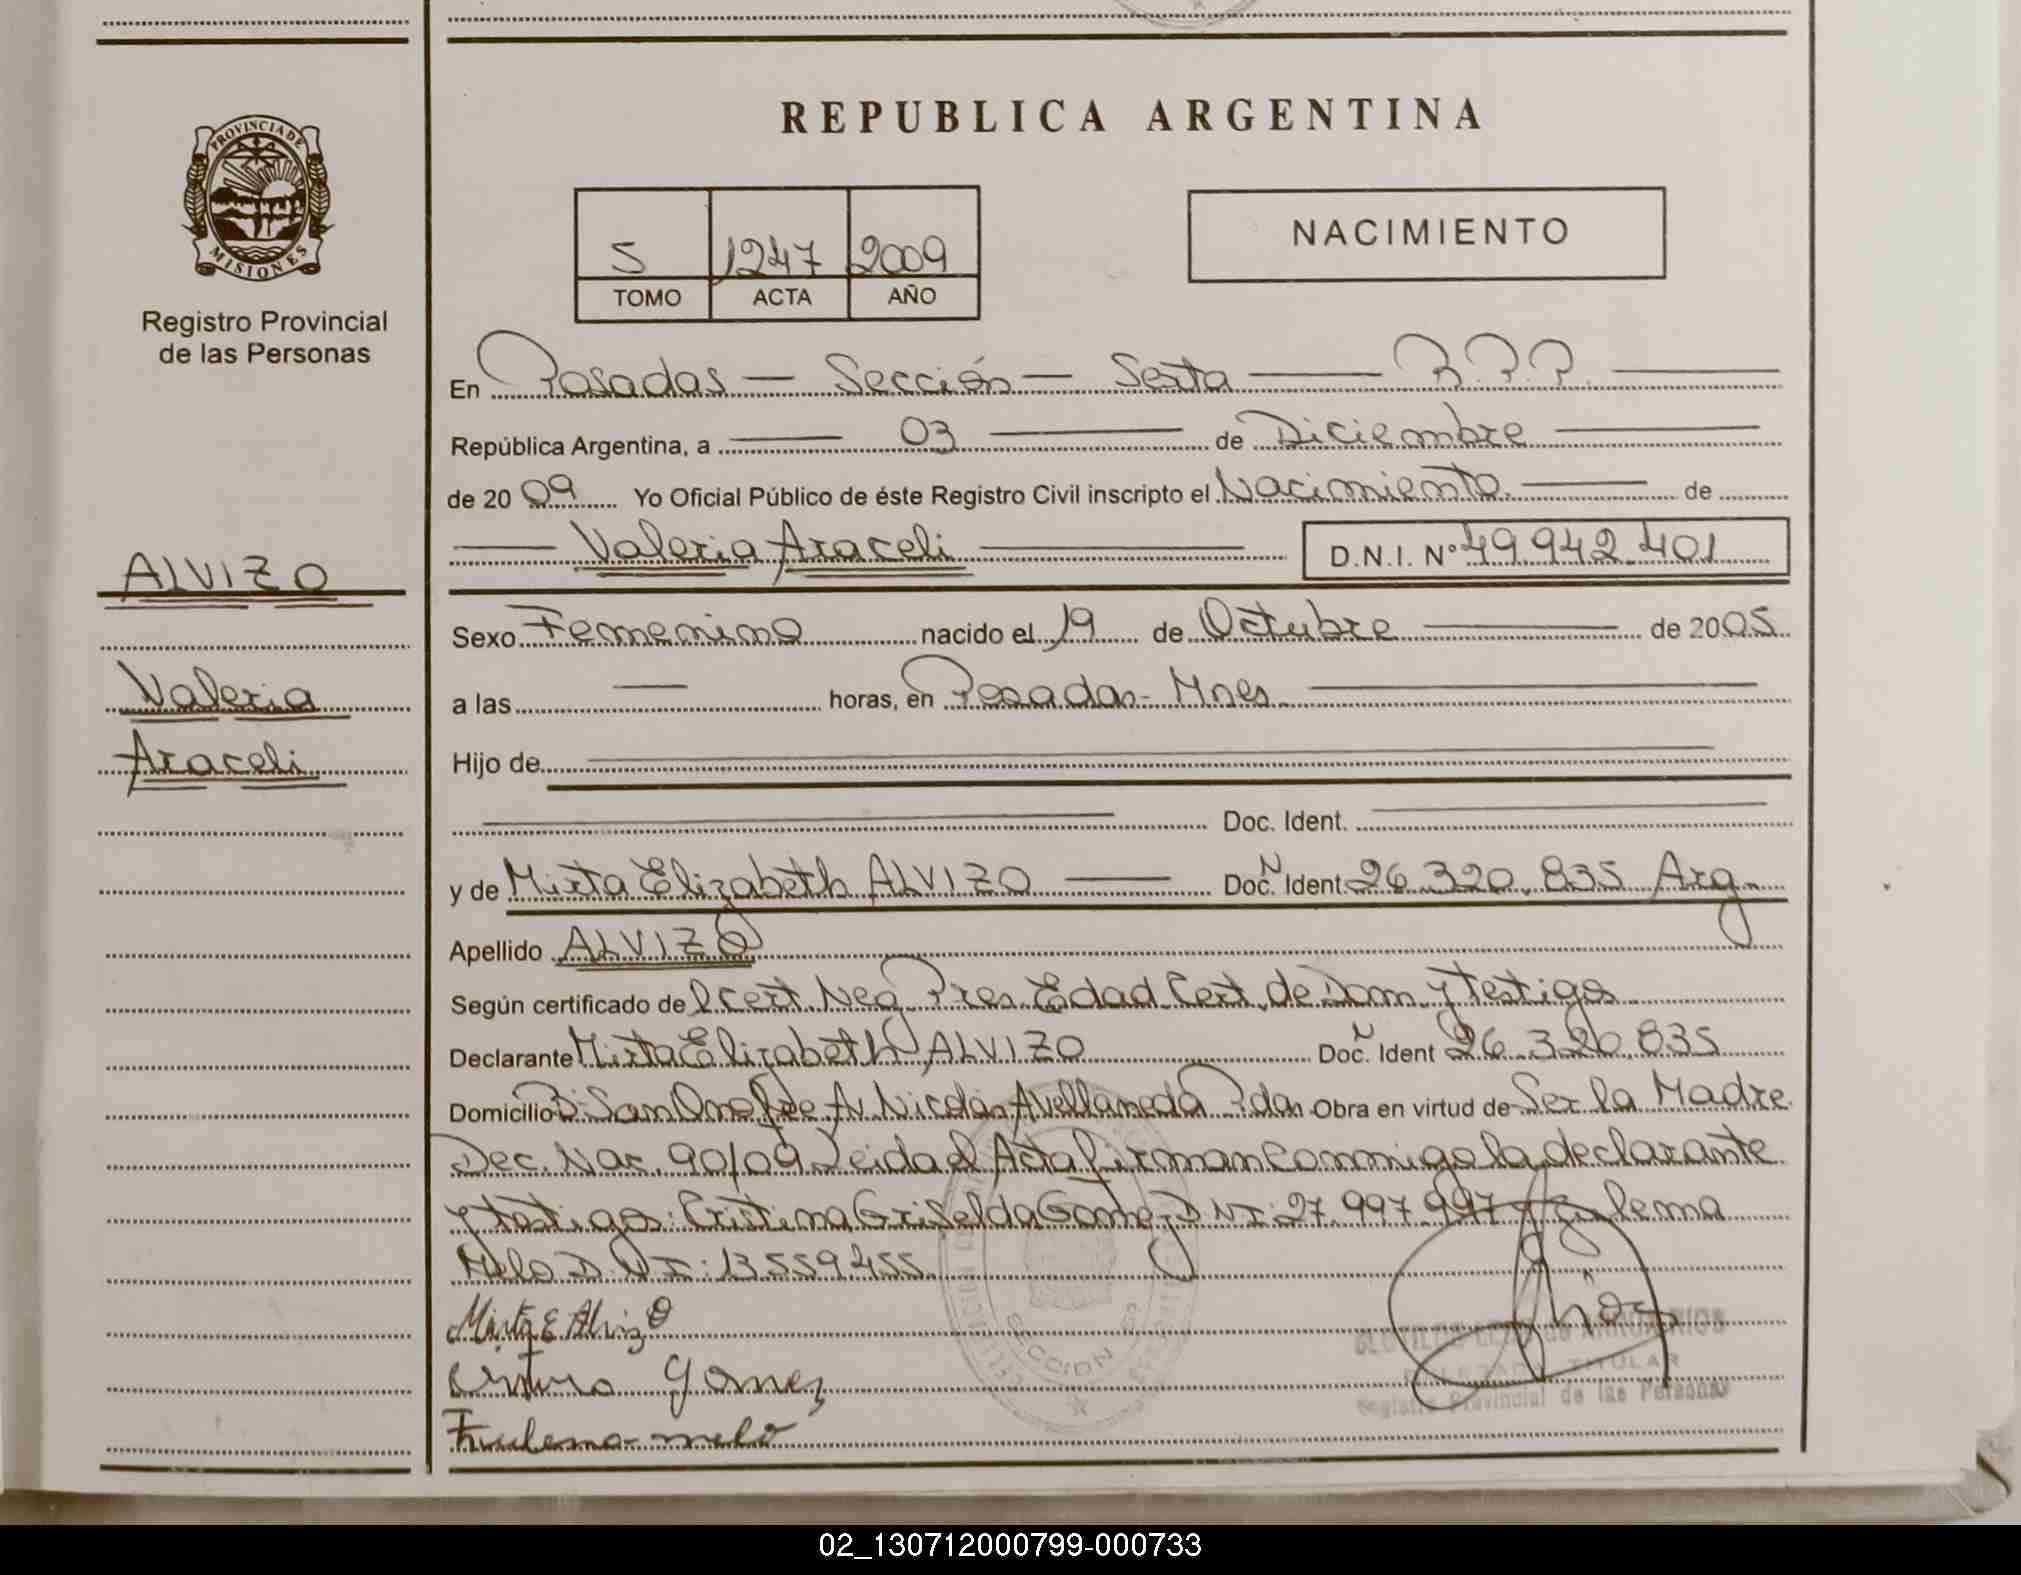 REPUBLICA ARGENTINA
PROVINCIA DE
MISIONES
Registro Provincial
de las Personas
5 1247 2009
TOMO ACTA AÑO
NACIMIENTO
En Posadas — Sección — Sexta — R.P.P. —
República Argentina, a — 03 — de Diciembre —
de 2009 Yo Oficial Público de éste Registro Civil inscripto el Nacimiento — de
— Valeria Araceli — D.N.I. Nº 49.942.401
ALVIZO
Valeria
Araceli
Sexo Femenino nacido el 19 de Octubre — de 2005
a las — horas, en Posadas - Mnes —
Hijo de
Doc. Ident.
y de Mirta Elizabeth ALVIZO — Doc. Ident. 26.320.835 Arg.
Apellido ALVIZO
Según certificado de cert. Neg. Pres. Edad Cert. de Dom y Testigos
Declarante Mirta Elizabeth ALVIZO Doc. Ident 26.320.835
Domicilio Bº San Onofre Av. Nicolás Avellaneda Pdas Obra en virtud de Ser la Madre
Dec. Nac. 90/09 Leida el Acta firman conmigo la declarante
y testigos: Cristina Griselda Gomez D.N.I: 27.997.997 y Zulema
Melo D.N.I: 13559455
Mirta E Alvizo
Gomez
Zulema melo
SECCION 6
TITULAR
Registro Provincial de las Personas
02_130712000799-000733